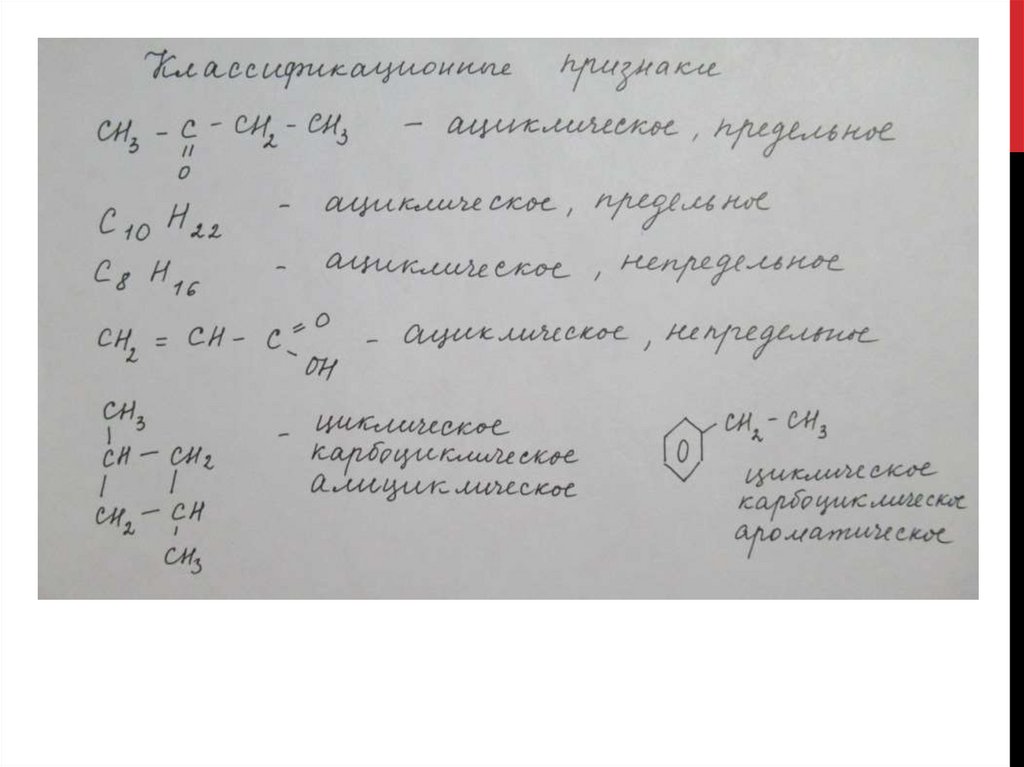 Классификационные признаки
CH3 - C - CH2 - CH3 - ациклическое, предельное
=
O
C10 H22 - ациклическое, предельное
C8 H16 - ациклическое, непредельное
CH2 = CH - C = O - ациклическое, непредельное
- OH
CH3
CH - CH2 - циклическое
карбоциклическое
CH2 - CH алициклическое
CH3
CH2 - CH3
циклическое
карбоциклическое
ароматическое